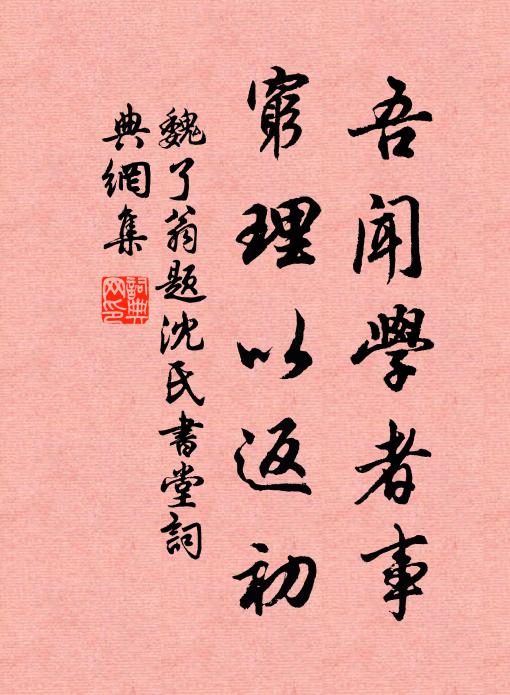 吾闻學者事
窮理以返初
魏了翁题沈氏書堂詞
典網集
詞典网印